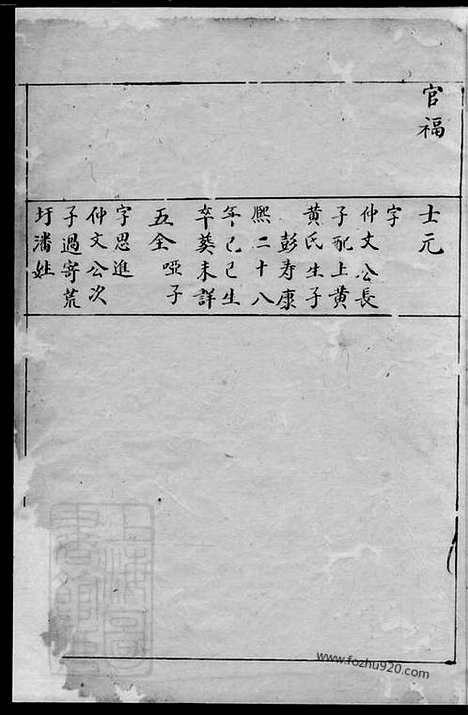 官福
士元
字
仲文公長
子配上黄
黄氏生子
彭寿康
熈二十八
年己巳生
卒葵未詳
五全
啞子
字思進
仲文公次
子過寄荒
圩潘姓
www.fozhu920.com